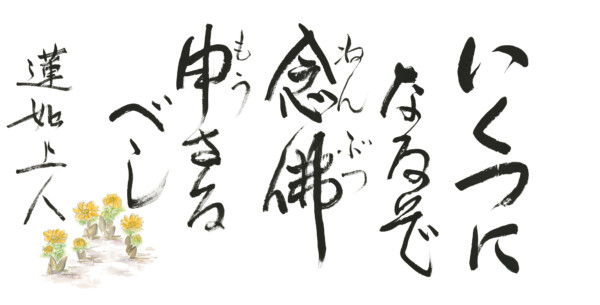 いくつに
なるぞ
念佛
ねんぶつ
申さる
もう
べし
蓮如上人